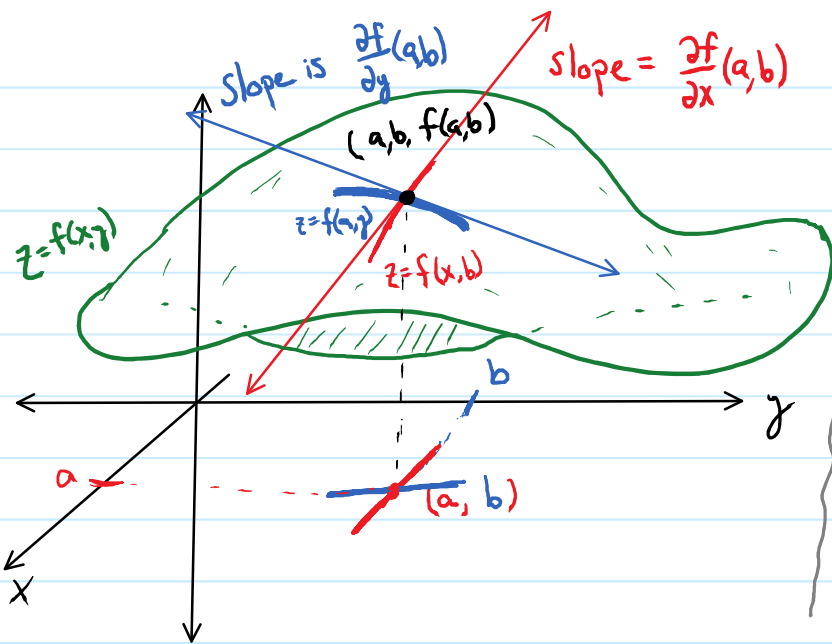 slope is ∂f/∂y (a,b)
slope = ∂f/∂x (a,b)
(a,b, f(a,b)
z=f(x,y)
z=f(a,y)
z=f(x,b)
b
y
a
(a, b)
x